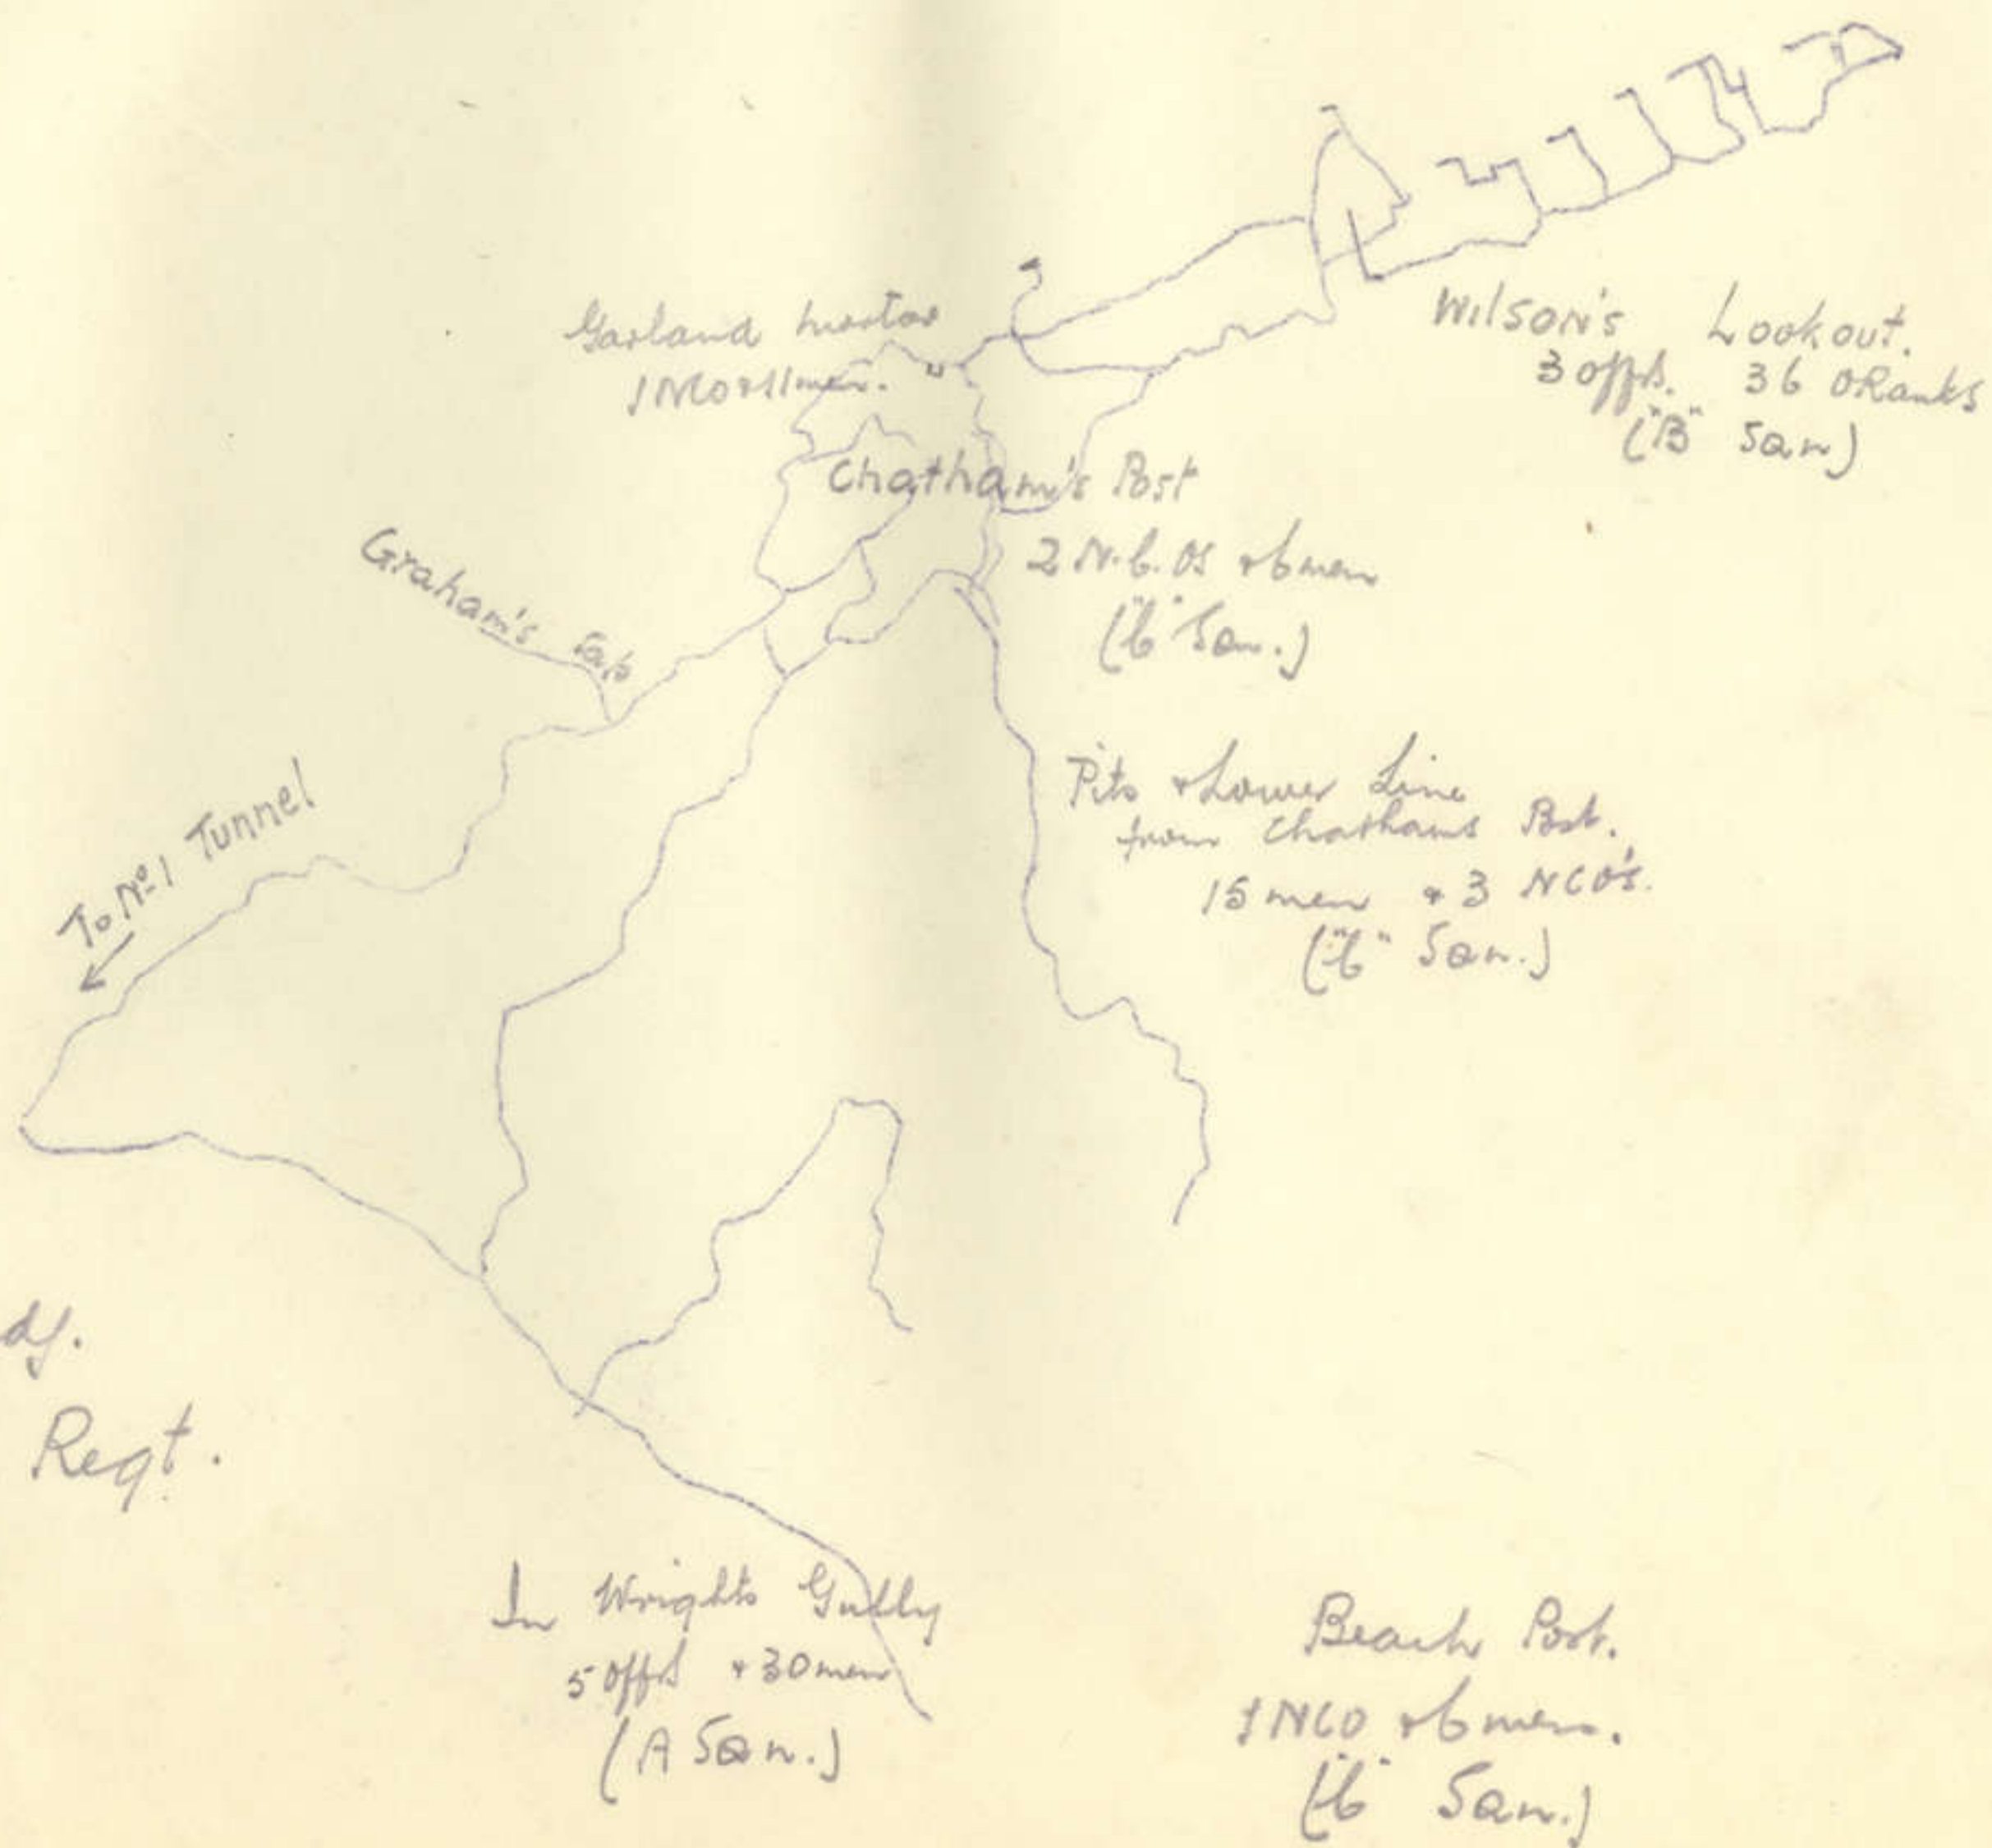 Garland mortar
1 NCO & 11 men.
Wilson's Lookout.
3 offrs. 36 ORanks
("B" Sqn)
Chatham's Post
2 N.C.Os & 6 men
("C" Sqn.)
Graham's Sap
Pits & Lower Line
from Chathams Post.
15 men & 3 NCO's.
("C" Sqn.)
To No 1 Tunnel
Regt.
In Wrights Gully
5 Offrs & 30 men
(A Sqn.)
Beach Post.
1 NCO & 6 men.
("C" Sqn.)